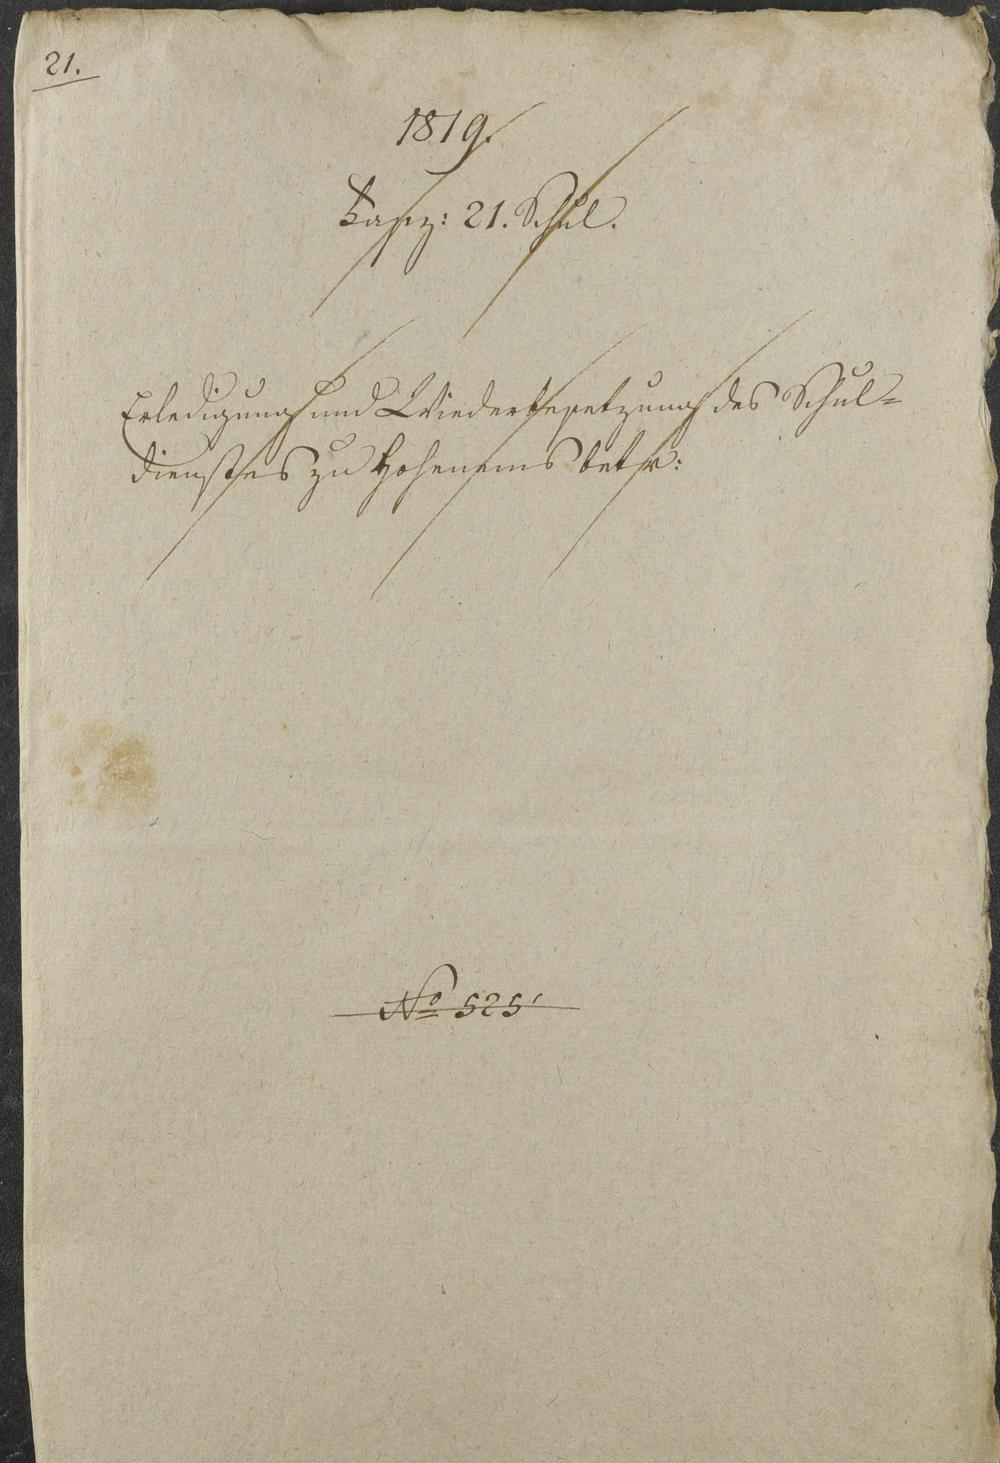 21.
1819.
Fasz: 21. Schul.
Erledigung und Wiederbesetzung des Schul=
dienstes zu Hohenems betr:
No 525